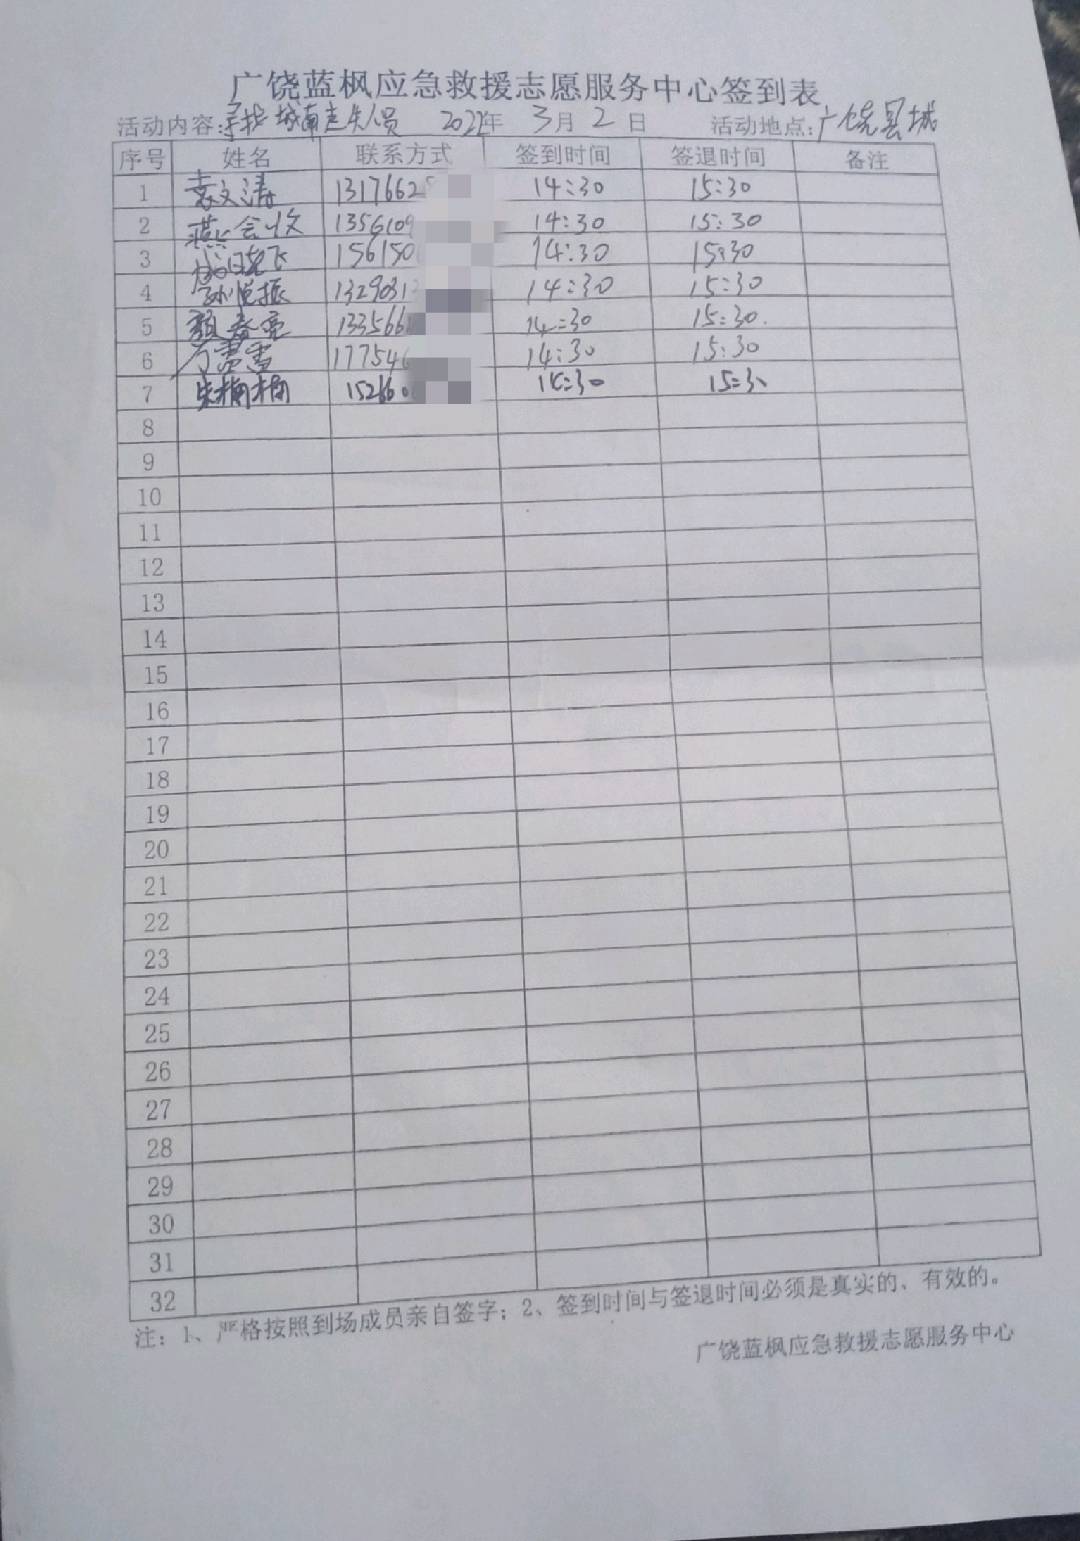 广饶蓝枫应急救援志愿服务中心签到表
活动内容:寻找城南走失人员 2022年 3月 2日 活动地点:广饶县城
序号 姓名 联系方式 签到时间 签退时间 备注
1 袁文涛 1317662 14:30 15:30
2 燕会收 1356109 14:30 15:30
3 成晓飞 156150 14:30 15:30
4 孙 振 1329031 14:30 15:30
5 春亮 133566 14:30 15:30.
6 雪 17754 14:30 15:30
7 朱楠楠 15266 14:30 15:30
8
9
10
11
12
13
14
15
16
17
18
19
20
21
22
23
24
25
26
27
28
29
30
31
32
注：1、严格按照到场成员亲自签字；2、签到时间与签退时间必须是真实的、有效的。
广饶蓝枫应急救援志愿服务中心